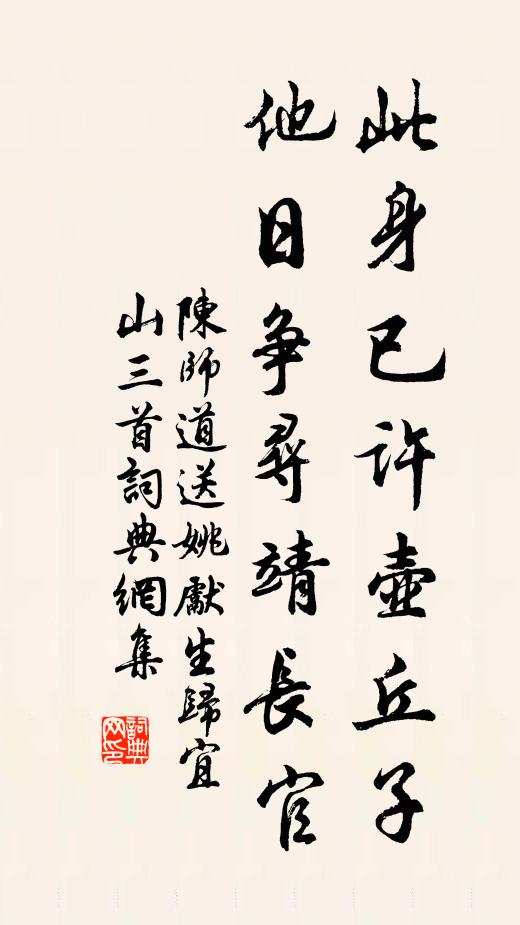 此身已許壺丘子
他日争尋靖長官
陳師道送姚獻生歸宜
山三首詞典網集
詞典
网印